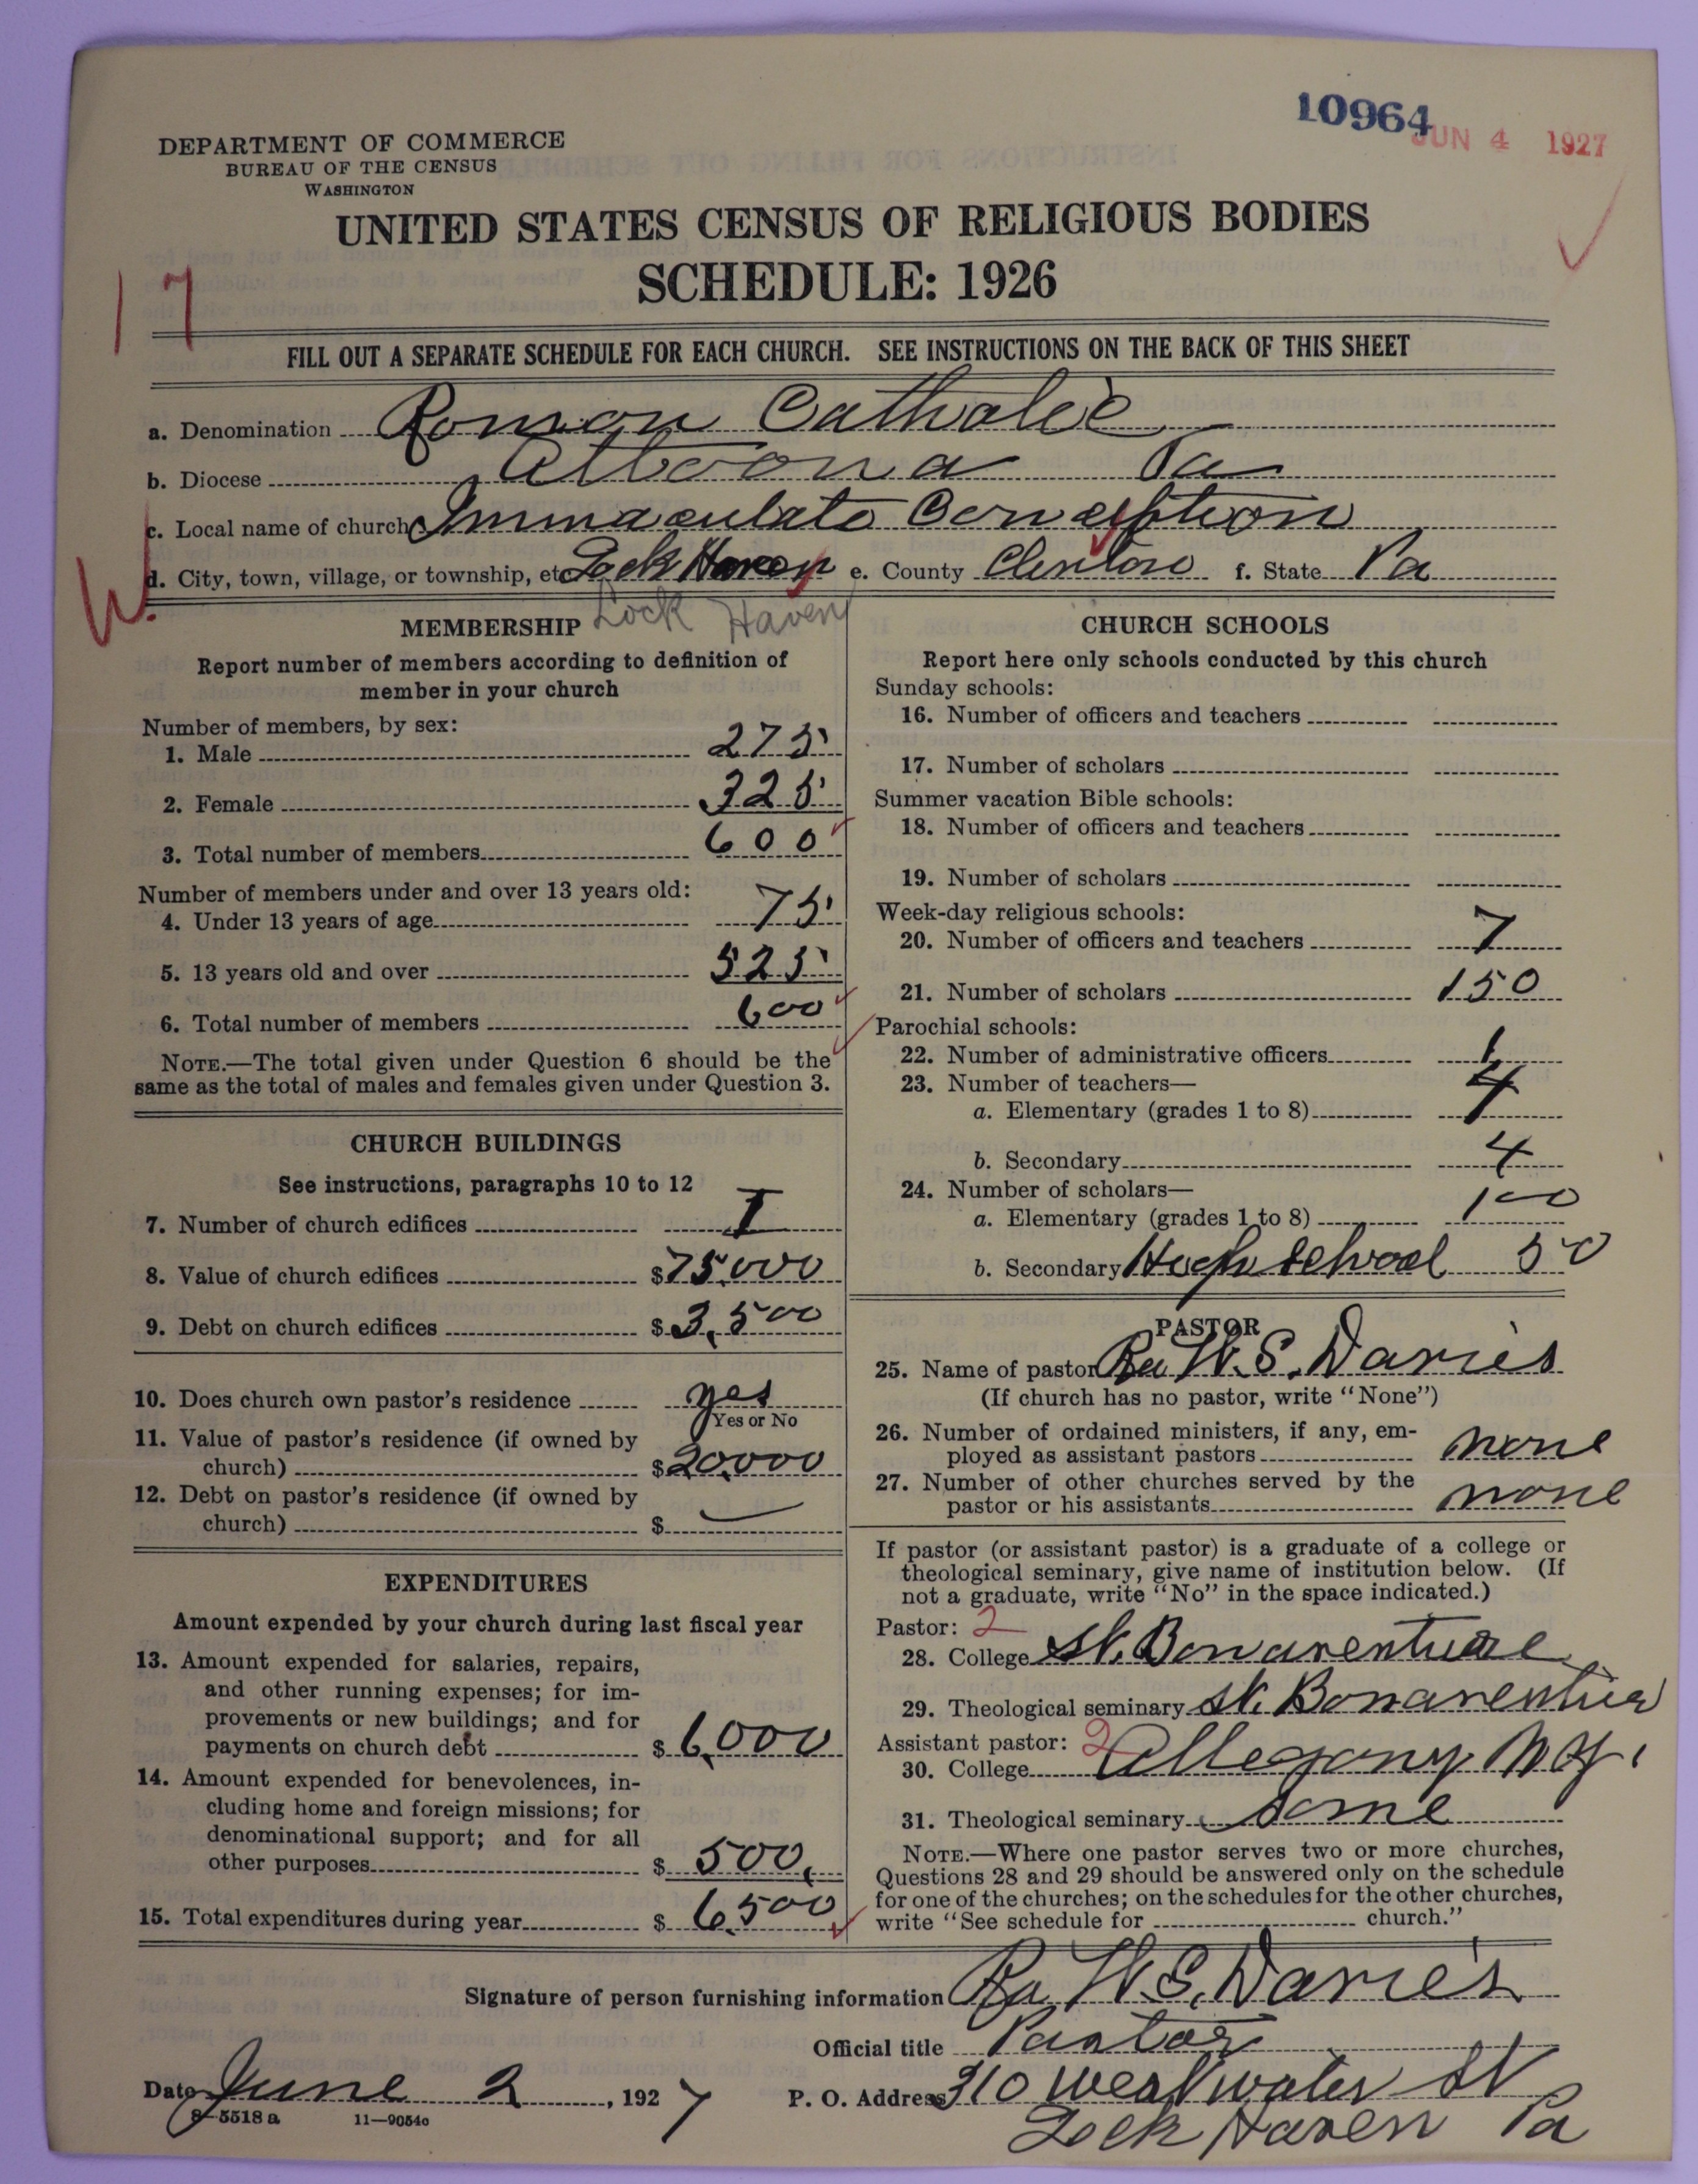 10964
JUN 4 1927
DEPARTMENT OF COMMERCE
BUREAU OF THE CENSUS
WASHINGTON
UNITED STATES CENSUS OF RELIGIOUS BODIES
SCHEDULE: 1926
17
FILL OUT A SEPARATE SCHEDULE FOR EACH CHURCH. SEE INSTRUCTIONS ON THE BACK OF THIS SHEET
a. Denomination Roman Catholic
b. Diocese Altoona Pa
c. Local name of church Immaculate Conception
d. City, town, village, or township, etc Lock Haven e. County Clinton f. State Pa
Lock Haven
MEMBERSHIP
Report number of members according to definition of
member in your church
Number of members, by sex:
1. Male 275
2. Female 325
3. Total number of members 600
Number of members under and over 13 years old:
4. Under 13 years of age 75
5. 13 years old and over 525
6. Total number of members 600
NOTE.—The total given under Question 6 should be the
same as the total of males and females given under Question 3.
CHURCH BUILDINGS
See instructions, paragraphs 10 to 12
7. Number of church edifices 1
8. Value of church edifices $75,000
9. Debt on church edifices $3,500
10. Does church own pastor's residence yes
Yes or No
11. Value of pastor's residence (if owned by
church) $20,000
12. Debt on pastor's residence (if owned by
church) $ —
EXPENDITURES
Amount expended by your church during last fiscal year
13. Amount expended for salaries, repairs,
and other running expenses; for im-
provements or new buildings; and for
payments on church debt $6,000
14. Amount expended for benevolences, in-
cluding home and foreign missions; for
denominational support; and for all
other purposes $500
15. Total expenditures during year $6,500
CHURCH SCHOOLS
Report here only schools conducted by this church
Sunday schools:
16. Number of officers and teachers
17. Number of scholars
Summer vacation Bible schools:
18. Number of officers and teachers
19. Number of scholars
Week-day religious schools:
20. Number of officers and teachers 7
21. Number of scholars 150
Parochial schools:
22. Number of administrative officers 1
23. Number of teachers—
a. Elementary (grades 1 to 8) 4
b. Secondary 4
24. Number of scholars—
a. Elementary (grades 1 to 8) 100
b. Secondary High School 50
PASTOR
25. Name of pastor Rev W. S. Davies
(If church has no pastor, write "None")
26. Number of ordained ministers, if any, em-
ployed as assistant pastors none
27. Number of other churches served by the
pastor or his assistants none
If pastor (or assistant pastor) is a graduate of a college or
theological seminary, give name of institution below. (If
not a graduate, write "No" in the space indicated.)
Pastor: 2
28. College St. Bonaventure
29. Theological seminary St. Bonaventure
Assistant pastor: 2
30. College Allegany N.Y.
31. Theological seminary Same
NOTE.—Where one pastor serves two or more churches,
Questions 28 and 29 should be answered only on the schedule
for one of the churches; on the schedules for the other churches,
write "See schedule for church."
Signature of person furnishing information Rev W. S. Davies
Official title Pastor
Date June 2, 1927 P. O. Address 310 West Water St
Lock Haven Pa
8—5518 a 11—9054o